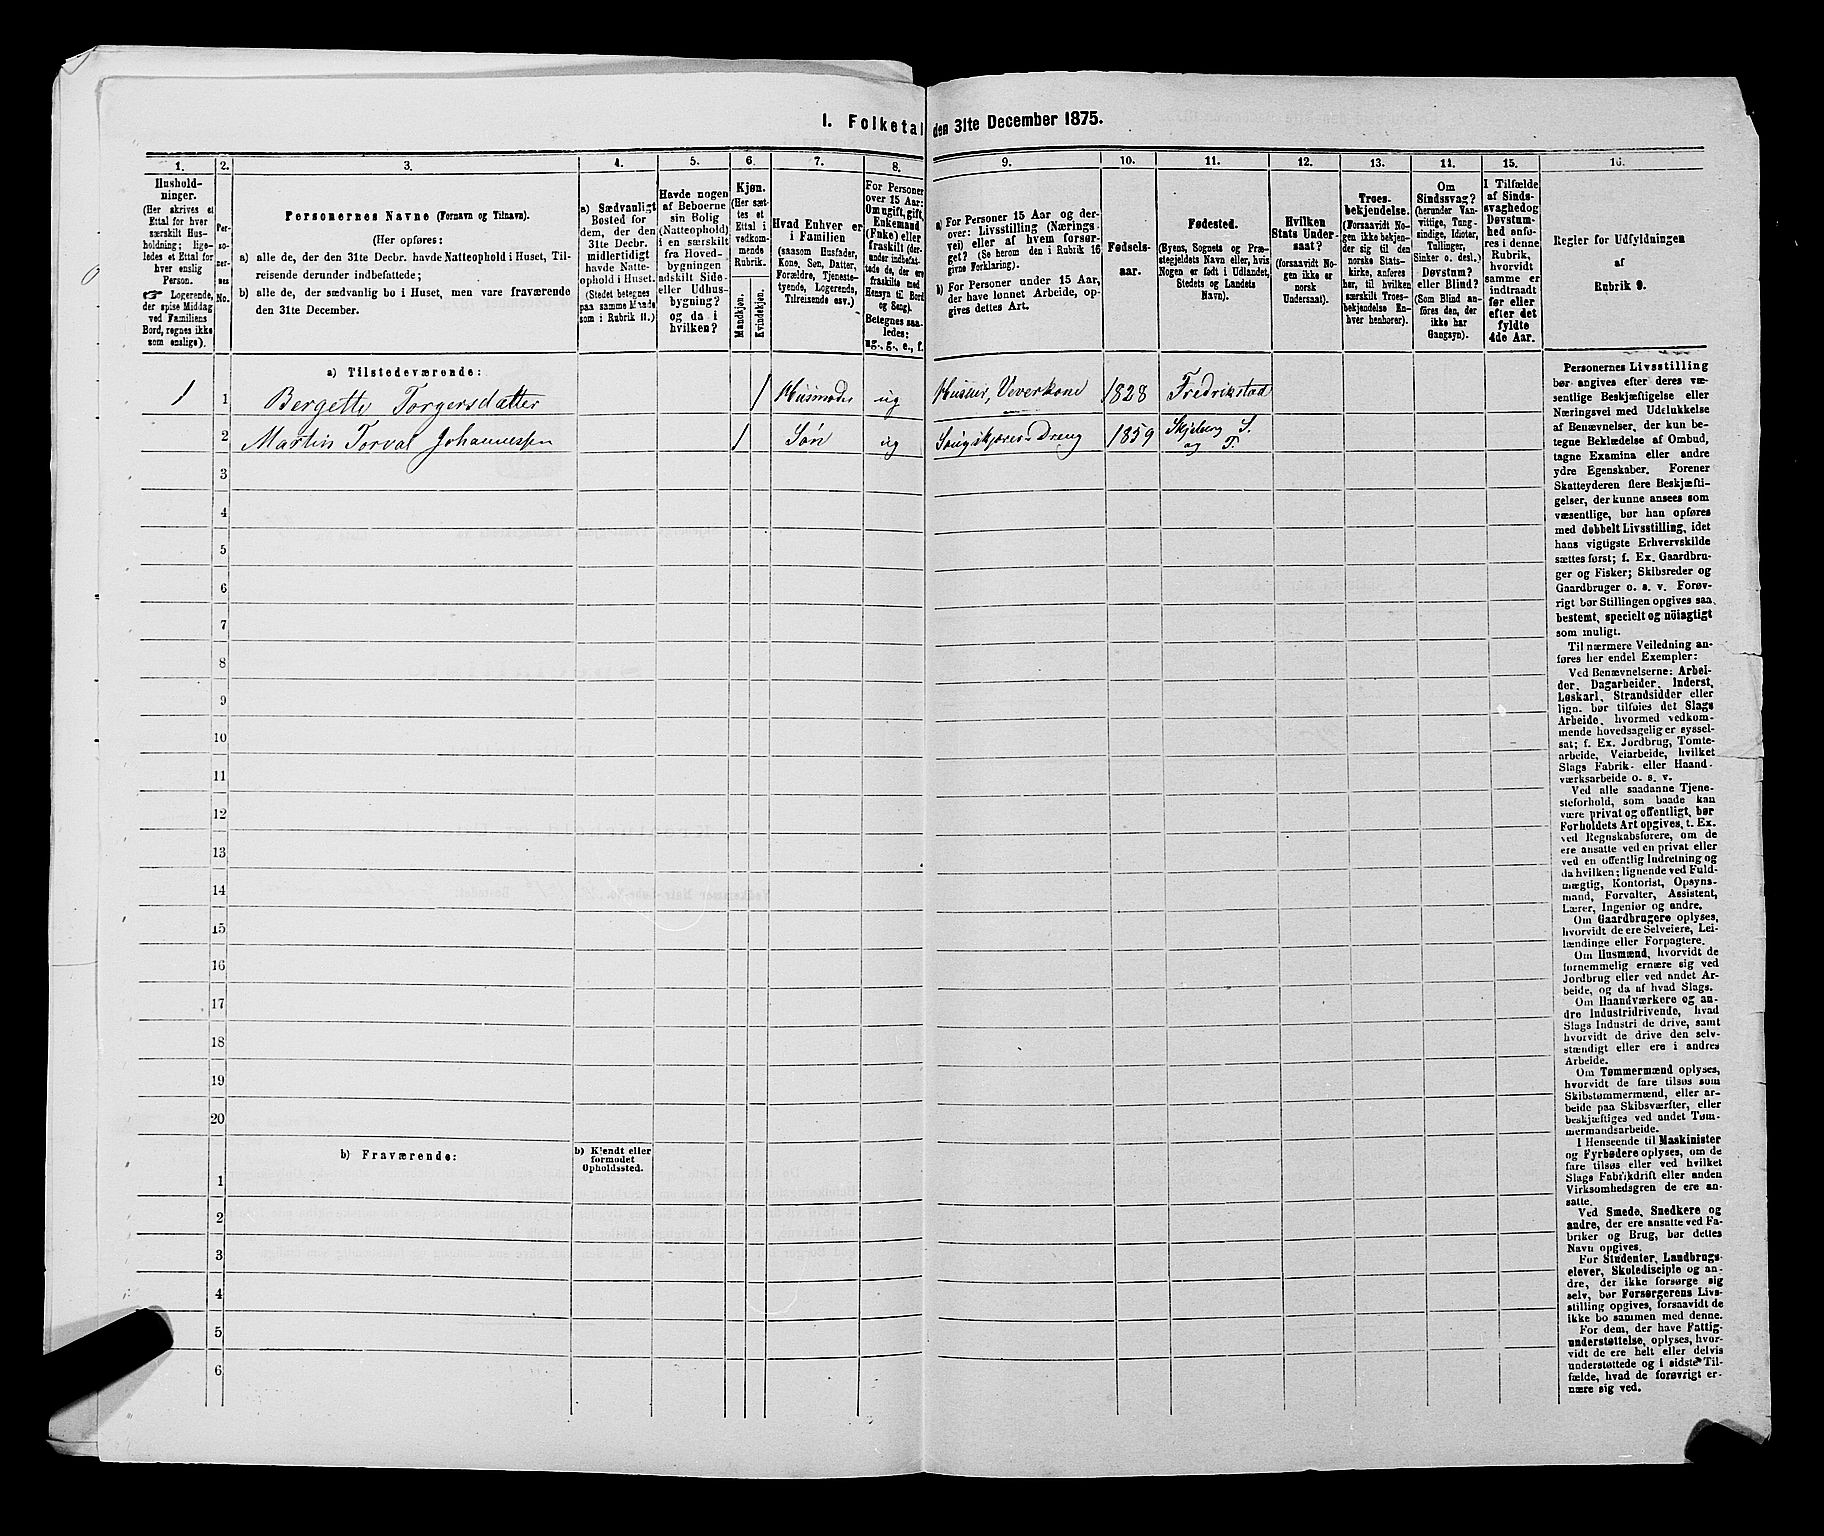 1. Folketal den 31te December 1875.
1. 2. 3. 4. 5. 6. 7. 8. 9. 10. 11. 12. 13. 14. 15. 16.
Hushold-
ninger.
(Her skrives et
Ettal for hver
særskilt Hus-
holdning; lige-
ledes et Ettal for
hver enslig
Person.
☞ Logerende,
der spise Middag
ved Familiens
Bord, regnes ikke
som enslige).
Per-
so-
ner-
nes
No.
Personernes Navne (Fornavn og Tilnavn).
(Her opføres:
a) alle de, der den 31te Decbr. havde Natteophold i Huset, Til-
reisende derunder indbefattede;
b) alle de, der sædvanlig bo i Huset, men vare fraværende
den 31te December.
a) Sædvanligt
Bosted for
dem, der den
31te Decbr.
midlertidigt
havde Natte-
ophold i Huset.
(Stedet betegnes
paa samme Maade
som i Rubrik 11.)
Havde nogen
af Beboerne
sin Bolig
(Natteophold)
i en særskilt
fra Hoved-
bygningen
adskilt Side-
eller Udhus-
bygning?
og da i
hvilken?
Kjøn.
(Her sæt-
tes et
Ettal i
vedkom-
mende
Rubrik.
Mandkjøn.
Kvindekjøn.
Hvad Enhver er
i Familien
(saasom Husfader,
Kone, Søn, Datter,
Forældre, Tjeneste-
tyende, Logerende,
Tilreisende osv.)
For Personer
over 15 Aar:
Om ugift, gift,
Enkemand
(Enke) eller
fraskilt (der-
under indbefat-
tede de, der ere
fraskilte med
Hensyn til Bord
og Seng).
Betegnes saa-
ledes:
ug., g., e., f.
a) For Personer 15 Aar og der-
over: Livsstilling (Nærings-
vei) eller af hvem forsør-
get? (Se herom den i Rubrik 16
givne Forklaring).
b) For Personer under 15 Aar,
der have lønnet Arbeide, op-
gives dettes Art.
Fødsels-
aar.
Fødested.
(Byens, Sognets og Præ-
stegjeldets Navn eller, hvis
Nogen er født i Udlandet,
Stedets og Landets
Navn).
Hvilken
Stats Under-
saat?
(forsaavidt No-
gen ikke er
norsk
Undersaat).
Troes-
bekjendelse.
(Forsaavidt No-
gen ikke bekjen-
der sig til den
norske Stats-
kirke, anføres
her, til hvilken
særskilt Troes-
bekjendelse En-
hver henhører).
Om
Sindssvag?
(herunder Van-
vittige, Tung-
sindige, Idioter,
Tullinger,
Sinker o. desl.)
Døvstum?
eller Blind?
(Som Blind an-
føres den, der
ikke har
Gangsyn).
I Tilfælde
af Sinds-
svaghed og
Døvstum-
hed anfø-
res i denne
Rubrik,
hvorvidt
samme er
indtraadt
før eller
efter det
fyldte
4de Aar.
Regler for Udfyldningen
af
Rubrik 9.
a) Tilstedeværende:
1 1 Bergette Torgersdatter 1 Husmoder ug Huseier, Veverkone 1828 Fredrikstad
2 Martin Torval Johannessen 1 Søn ug 1859 Skjeberg S.
og P.
3
4
5
6
7
8
9
10
11
12
13
14
15
16
17
18
19
20
b) Fraværende: b) Kjendt eller
formodet
Opholdssted.
1
2
3
4
5
6
Personernes Livsstilling
bør angives efter deres væ-
sentlige Beskjæftigelse eller
Næringsvei med Udelukkelse
af Benævnelser, der kun be-
tegne Beklædelse af Ombud,
tagne Examina eller andre
ydre Egenskaber. Forener
Skatteyderen flere Beskjæfti-
gelser, der kunne ansees som
væsentlige, bør han opføres
med dobbelt Livsstilling, idet
hans vigtigste Erhvervskilde
sættes først; f. Ex. Gaardbru-
ger og Fisker; Skibsreder og
Gaardbruger o. s. v. Forøv-
rigt bør Stillingen opgives saa
bestemt, specielt og nöiagtigt
som muligt.
Til nærmere Veiledning an-
føres her endel Exempler:
Ved Benævnelserne: Arbei-
der, Dagarbeider, Inderst,
Løskarl, Strandsidder eller
lign. bør tilføies det Slags
Arbeide, hvormed vedkom-
mende hovedsagelig er syssel-
sat; f. Ex. Jordbrug, Tomte-
arbeide, Veiarbeide, hvilket
Slags Fabrik- eller Haand-
værksarbeide o. s. v.
Ved alle saadanne Tjene-
steforhold, som baade kan
være privat og offentligt, bør
Forholdets Art opgives, t. Ex.
ved Regnskabsførere, om de
ere ansatte ved en privat eller
ved en offentlig Indretning og
da hvilken; lignende ved Fuld-
mægtig, Kontorist, Opsyns-
mand, Forvalter, Assistent,
Lærer, Ingeniør og andre.
Om Gaardbrugere oplyses,
hvorvidt de ere Selveiere, Lei-
lændinge eller Forpagtere.
Om Husmænd, hvorvidt de
fornemmelig ernære sig ved
Jordbrug eller ved andet Ar-
beide, og da af hvad Slags.
Om Haandværkere og an-
dre Industridrivende, hvad
Slags Industri de drive, samt
hvorvidt de drive den selv-
stændigt eller ere i andres
Arbeide.
Om Tømmermænd oplyses,
hvorvidt de fare tilsøs som
Skibstømmermænd, eller ar-
beide paa Skibsværfter, eller
beskjæftiges ved andet Tøm-
mermandsarbeide.
I Henseende til Maskinister
og Fyrbødere oplyses, om de
fare tilsøs eller ved hvilket
Slags Fabrikdrift eller anden
Virksomhedsgren de ere an-
satte.
Ved Smede, Snedkere og
andre, der ere ansatte ved Fa-
briker og Brug, bør dettes
Navn opgives.
For Studenter, Landbrugs-
elever, Skoledisciple og an-
dre, der ikke forsørge sig
selv, bør Forsørgerens Livs-
stilling opgives, forsaavidt de
ikke bo sammen med denne.
For dem, der have Fattig-
understøttelse, oplyses, hvor-
vidt de ere helt eller delvis
understøttede og i sidste Til-
fælde, hvad de forøvrigt er-
nære sig ved.